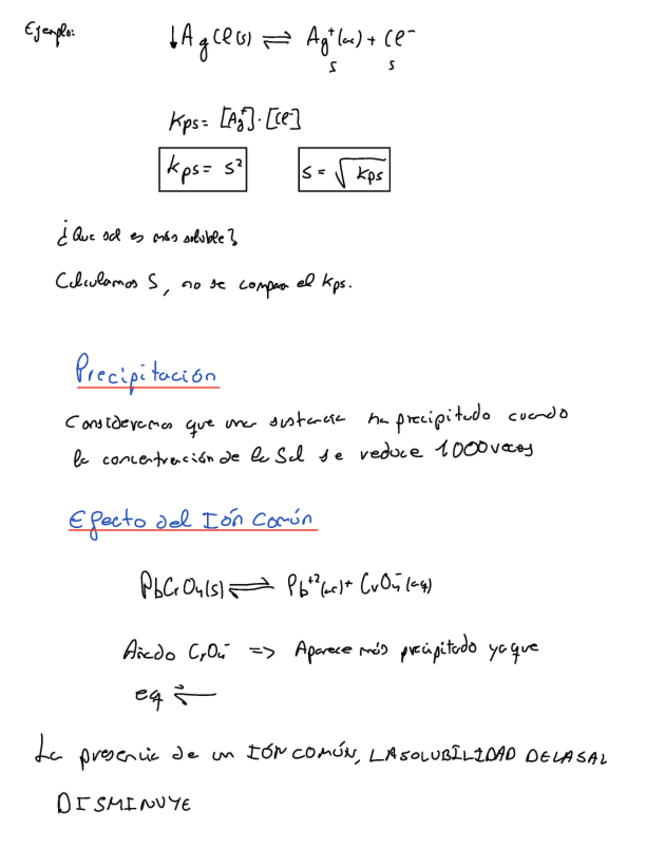 Ejemplo: ↓AgCl(s) ⇌ Ag⁺(ac) + Cl⁻
s s
Kps = [Ag⁺]·[Cl⁻]
Kps = s² s = √Kps
¿Que sal es más soluble?
Calculamos S, no se compara el Kps.
Precipitación
Consideramos que una sustancia ha precipitado cuando
la concentración de la Sal se reduce 1000 veces
Efecto del Ión Común
PbCrO₄(s) ⇌ Pb⁺²(ac) + CrO₄⁻(aq)
Añado CrO₄⁻ => Aparece más precipitado ya que
eq ⇌
La presencia de un IÓN COMÚN, LA SOLUBILIDAD DE LA SAL
DISMINUYE